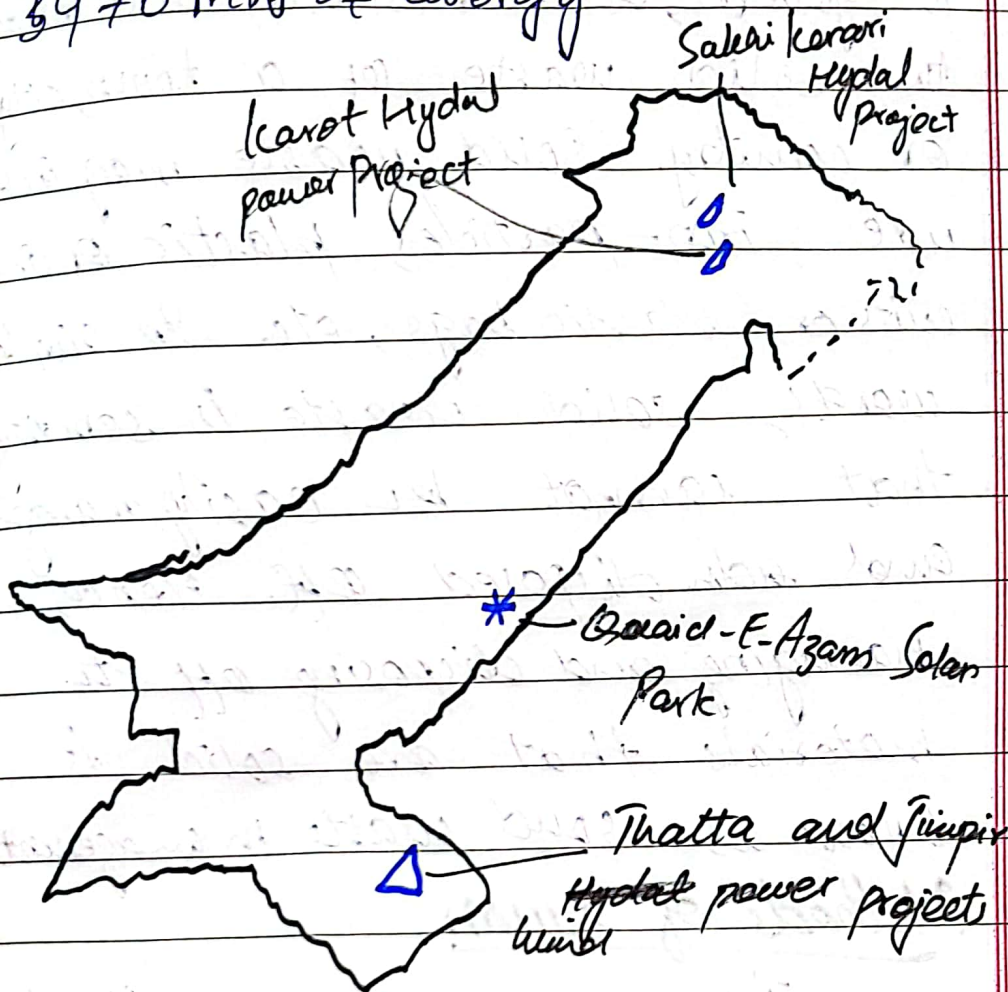 3970 MWs of energy
Sakhi Kanari
Hydal
Project
Karot Hydal
power Project
Quaid-E-Azam Solar
Park.
Thatta and Jimpir
Hydal power projects
Wind